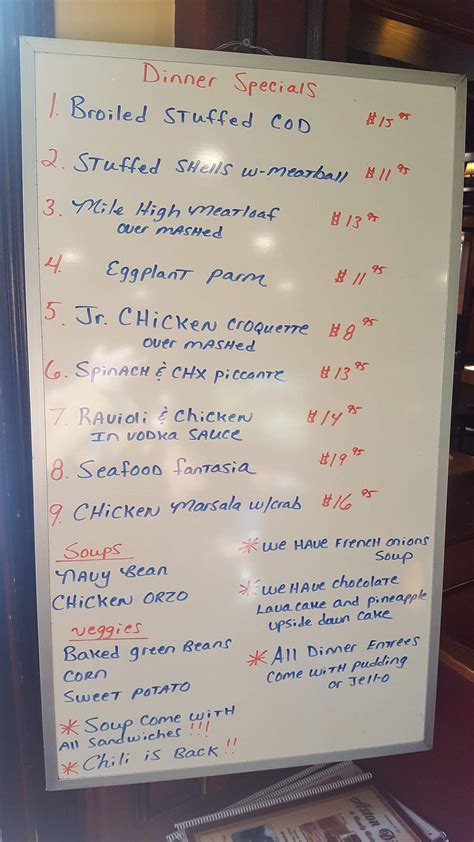 Dinner Specials
1. Broiled Stuffed COD $15 95
2. Stuffed Shells w-meatball $11 95
3. Mile High Meatloaf $13 95
over MASHed
4. Eggplant parm $11 95
5. Jr. CHicken croquette $8 95
over MASHed
6. SpinacH & CHX piccante $13 95
7. RAvioli & CHicken $14 95
In VODKA SAUCE
8. Seafood fantasia $19 95
9. CHicken Marsala w/crab $16 95
Soups
NAvy Bean
CHicken ORZO
veggies
Baked green Beans
CORN
Sweet POTATO
* Soup come WITH
All Sandwiches !!!
* Chili is Back !!
* we HAve French onions
Soup
* we HAve chocolate
LAvA cake and pineapple
upside down cake
* All Dinner Entrees
come WITH pudding
or Jello